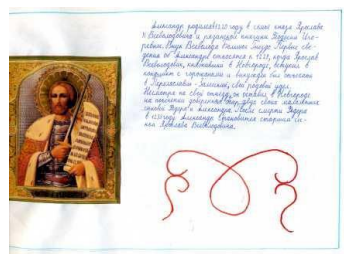 Александр родился в 1220 году в семье князя Ярослава
Всеволодовича и рязанской княгини Феодосии Иго-
ревны. Внук Всеволода Большое Гнездо. Первые све-
дения об Александре относятся к 1228, когда Ярослав
Всеволодович, княживший в Новгороде, вступил в
конфликт с горожанами и вынужден был отъехать
в Переяславль-Залесский, свой родовой удел.
Несмотря на свой отъезд, он оставил в Новгороде
на попечении доверенных бояр двух своих малолетних
сыновей Фёдора и Александра. После смерти Фёдора
в 1233 году Александр становится старшим сы-
ном Ярослава Всеволодовича.